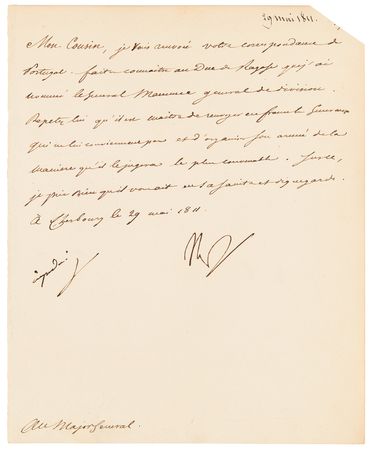 29 mai 1811.
Mon Cousin, je vous renvoie votre correspondance de
Portugal. faites connaître au Duc de Raguse que j'ai
nommé le Général Maucune général de division.
Repetez lui qu'il est maître de renvoyer en france les Généraux
qui ne lui conviennent pas et d'organiser son armée de la
manière qu'il le jugera le plus convenable. Sur ce,
je prie Dieu qu'il vous ait en sa sainte et digne garde.
À Cherbourg le 29 mai 1811.
Au Major Général.